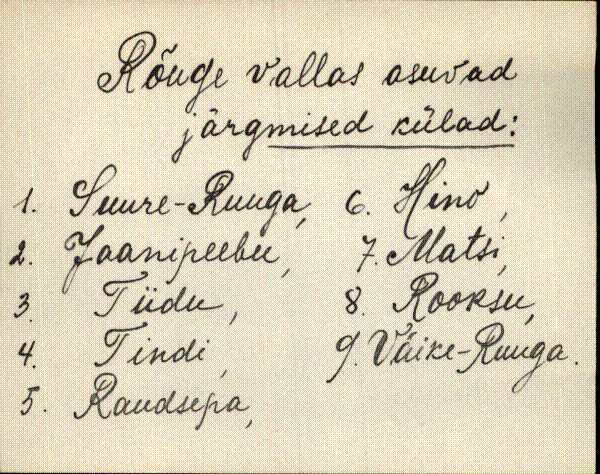 Rõuge vallas asuvad
järgmised külad:
1. Suure-Ruuga,
2. Jaanipeebu,
3. Tiidu,
4. Tindi,
5. Raudsepa,
6. Hino,
7. Matsi,
8. Rooksu,
9. Väike-Ruuga.